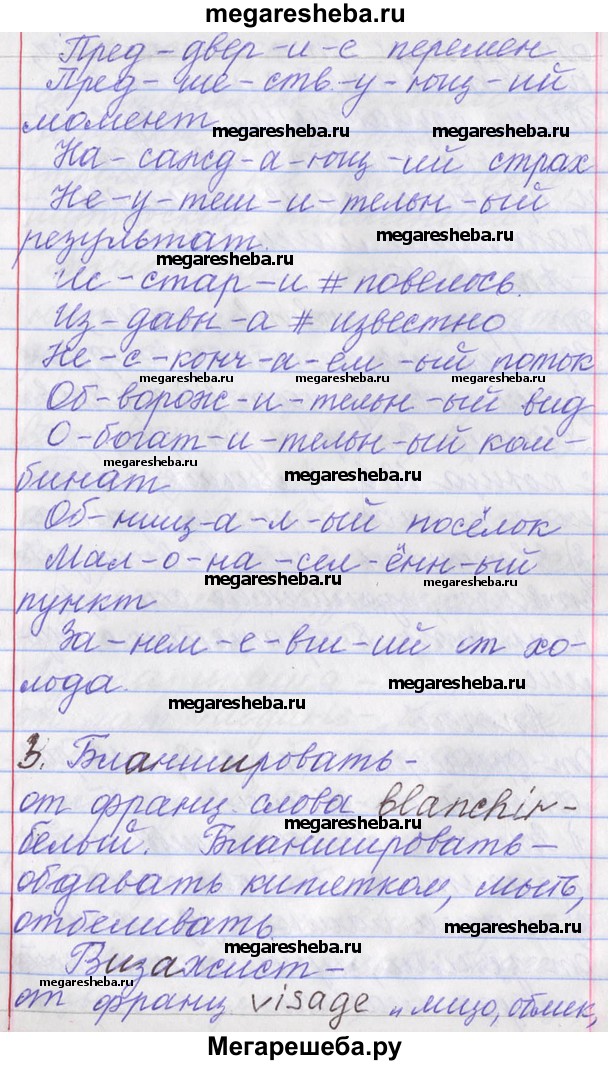 megaresheba.ru
Пред-двер-и-е перемен
Пред-ше-ств-у-ющ-ий
момент
megaresheba.ru megaresheba.ru
На-сажд-а-ющ-ий страх
Не-у-теш-и-тельн-ый
результат.
megaresheba.ru
Ис-стар-и # повелось.
megaresheba.ru
Из-давн-а # известно
Не-с-конч-а-ем-ый поток
megaresheba.ru megaresheba.ru megaresheba.ru
Об-ворож-и-тельн-ый вид
О-богат-и-тельн-ый ком-
megaresheba.ru
бинат
megaresheba.ru
Об-нищ-а-л-ый посёлок
Мал-о-на-сел-ённ-ый
megaresheba.ru megaresheba.ru
пункт
За-нем-е-вш-ий от хо-
лода.
megaresheba.ru megaresheba.ru
3. Бланшировать -
от франц слова blanchir-
megaresheba.ru
белый. Бланшировать-
обдавать кипетком, мыть,
отбеливать.
megaresheba.ru
Визажист -
megaresheba.ru
от франц visage „лицо, облик,
Мегарешеба.ру